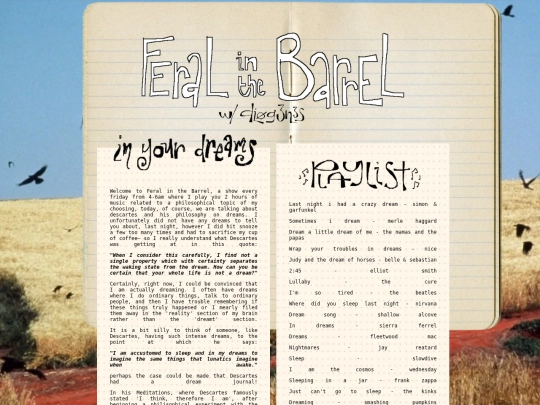 Feral in the Barrel
w/
in your dreams
Welcome to Feral in the Barrel, a show every
friday from 4-6am where I play you 2 hours of
music related to a philosophical topic of my
choosing, today, of course, we are talking about
descartes and his philosophy on dreams. I
unfortunately did not have any dreams to tell
you about, last night, however I did hit snooze
a few too many times and had to sacrifice my cup
of coffee— so I really understand what Descartes
was getting at in this quote:
"When I consider this carefully, I find not a
single property which with certainty separates
the waking state from the dream. How can you be
certain that your whole life is not a dream?"
Certainly, right now, I could be convinced that
I am actually dreaming. I often have dreams
where I do ordinary things, talk to ordinary
people, and then I have trouble remembering if
these things truly happened or I merely filed
them away in the 'reality' section of my brain
rather than the 'dreamt' section.
It is a bit silly to think of someone, like
Descartes, having such intense dreams, to the
point at which he says:
"I am accustomed to sleep and in my dreams to
imagine the same things that lunatics imagine
when awake."
perhaps the case could be made that Descartes
had a dream journal!
In his Meditations, where Descartes famously
stated 'I think, therefore I am', after
beginning a philosophical experiment with the
PLAYLIST
Last night i had a crazy dream - simon &
garfunkel
Sometimes i dream - merle haggard
Dream a little dream of me - the mamas and the
papas
Wrap your troubles in dreams - nice
Judy and the dream of horses - belle & sebastian
2:45 elliot smith
Lullaby the cure
I'm so tired - the beatles
Where did you sleep last night - nirvana
Dream song - shallow alcove
In dreams - sierra ferrel
Dreams - fleetwood mac
Nightmares - jay reatard
Sleep - slowdive
I am the cosmos - wednesday
Sleeping in a jar - frank zappa
Just can't go to sleep - the kinks
Dreaming - smashing pumpkins